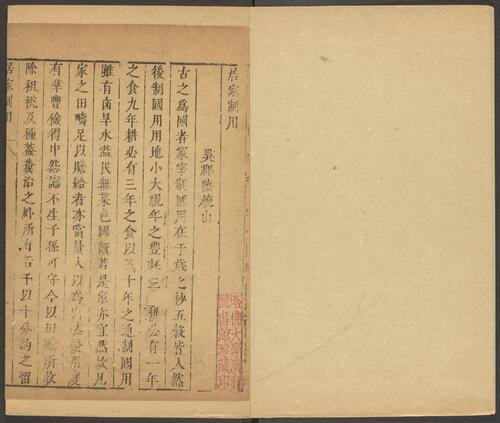 居家制用
吳郡陸梳山
古之爲國者冢宰制國用在于歲之杪五穀皆入然
後制國用用地小大視年之豊耗三年耕必有一年
之食九年耕必有三年之食以三十年之通制國用
雖有凶旱水溢民無菜色國旣若是家亦宜然故凡
家之田疇足以贍給者亦當量入以爲出然後用度
有準豊儉得中怨讟不生子孫可守今以田疇所收
除租稅及種蓋糞治之外所有若干以十分均之留
居家制用
哈佛大學漢和
圖書館珍藏印